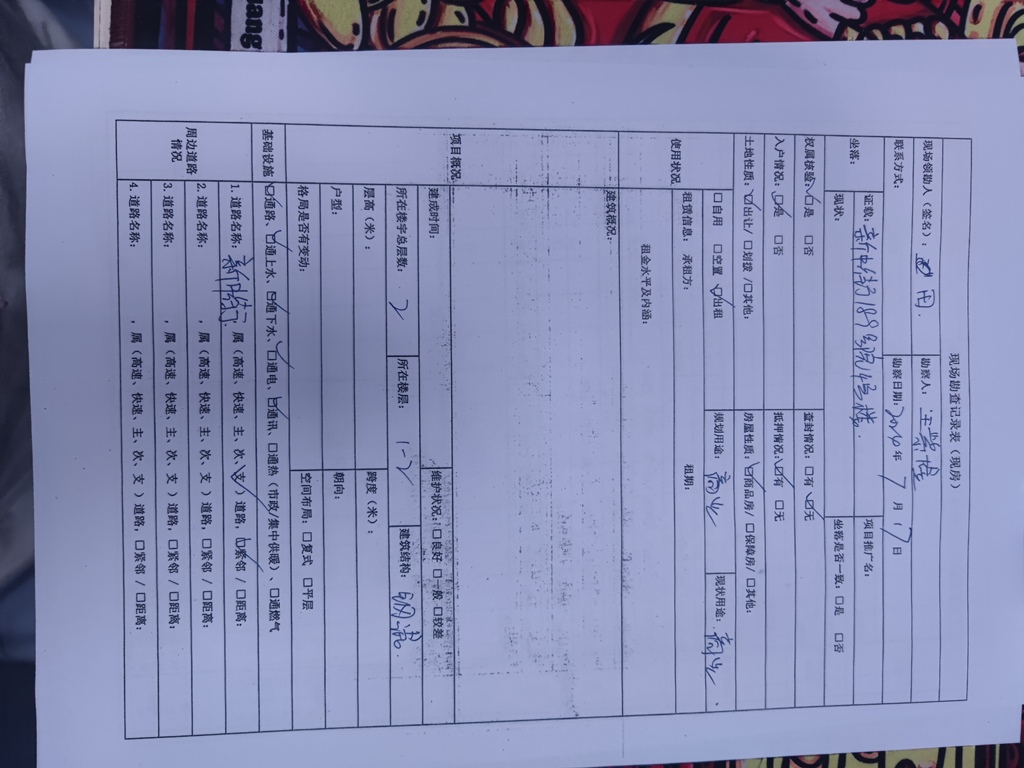 bang
现场勘查记录表（现房）
现场领勘人（签名）： 田 勘察人：
联系方式： 勘察日期：2024年7月17日
坐落： 证载：新中街189号院1号楼. 项目推广名：
现状： 坐落是否一致：□是 □否
权属核验：☑是 □否 查封情况：□有 ☑无
入户情况：☑是 □否 抵押情况：☑有 □无
土地性质：☑出让/□划拨/□其他： 房屋性质：☑商品房/□保障房/□其他：
使用状况 □自用 □空置 ☑出租 规划用途：商业 现状用途：商业.
租赁信息： 承租方： 租期：
租金水平及内涵：
项目概况 建筑概况：
建成时间： 维护状况：□良好 □一般 □较差
所在楼宇总层数：2 所在楼层：1-2 建筑结构：钢混.
层高（米）： 跨度（米）：
户型： 朝向：
格局是否有变动： 空间布局：□复式 □平层
基础设施 ☑通路、☑通上水、☑通下水、☑通电、☑通讯、□通热（市政/集中供暖）、□通燃气
周边道路情况 1. 道路名称：新中街，属（高速、快速、主、次、支✓）道路，☑紧邻/□距离：
2. 道路名称： ，属（高速、快速、主、次、支）道路，□紧邻/□距离：
3. 道路名称： ，属（高速、快速、主、次、支）道路，□紧邻/□距离：
4. 道路名称： ，属（高速、快速、主、次、支）道路，□紧邻/□距离：